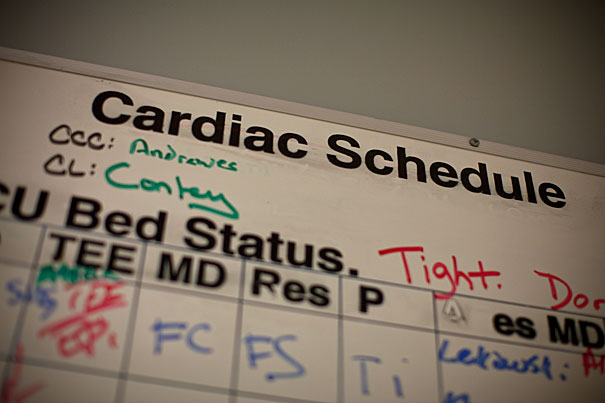 Cardiac Schedule
CCC: Andrewes
CL: Contey
CU Bed Status. Tight. Don
TEE MD Res P es MD
FC FS Ti Lekowski: